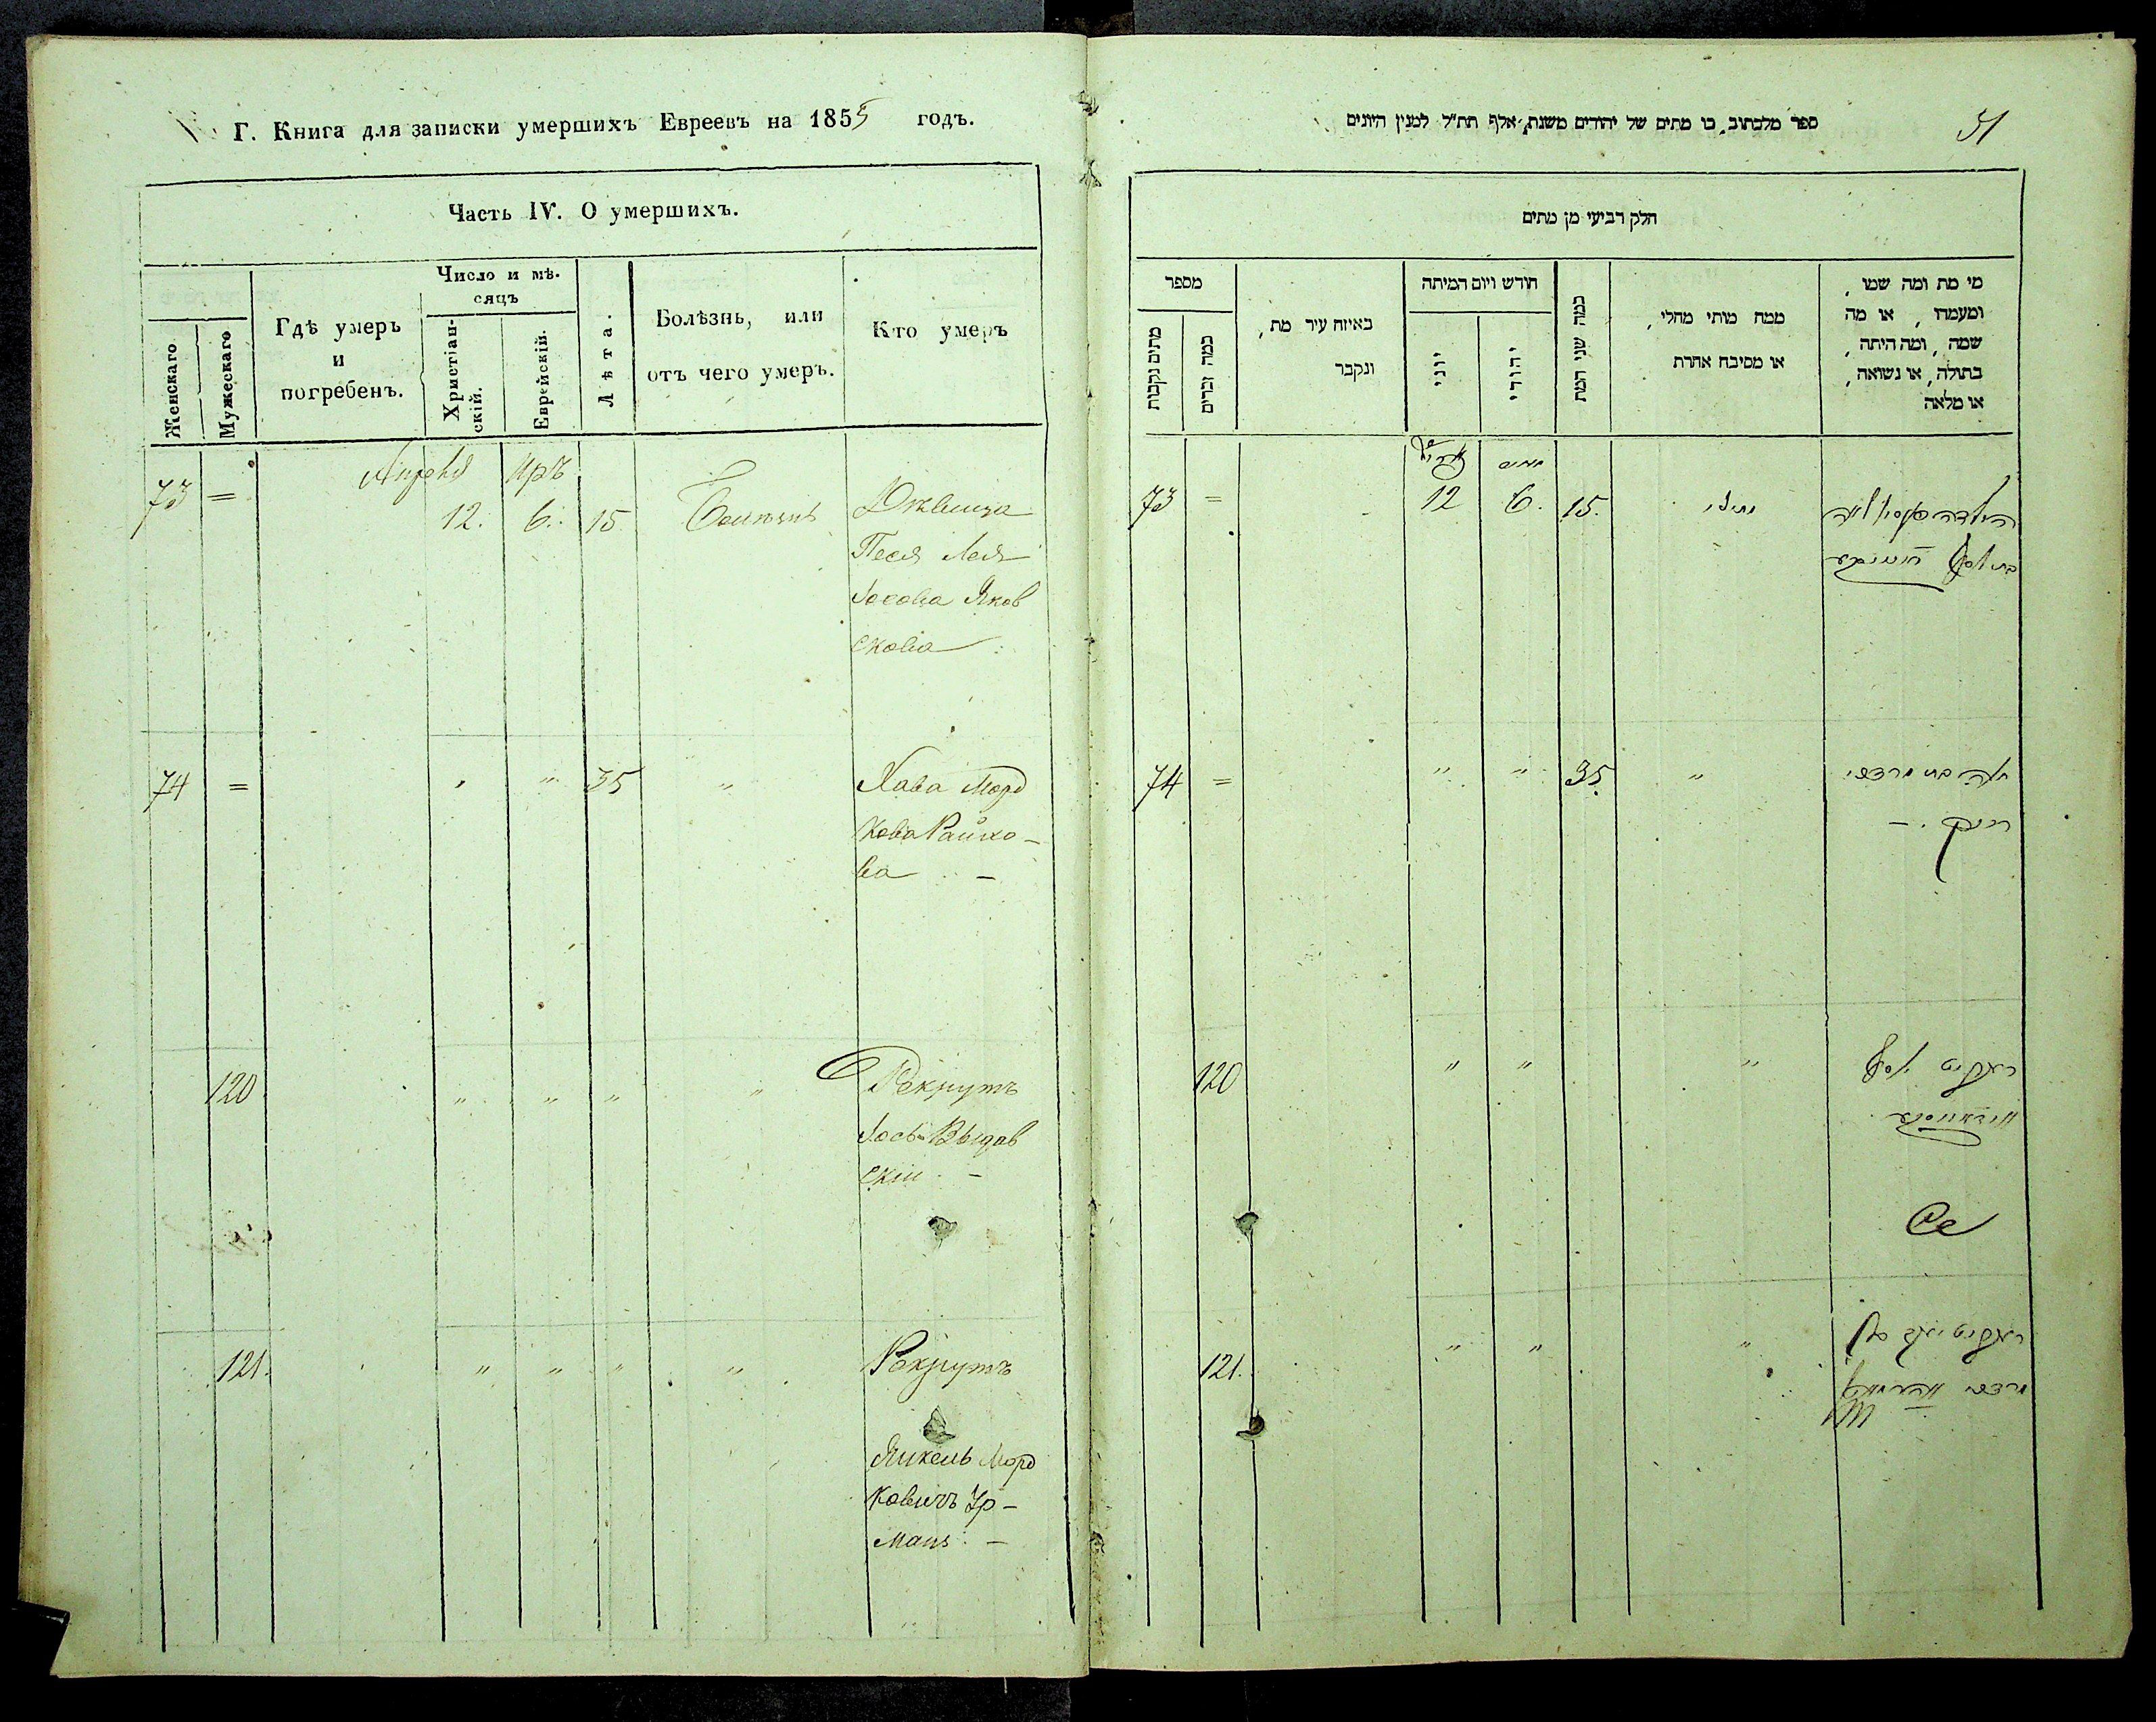 Г. Книга для записки умершихъ Евреевъ на 1855 годъ.
Часть IV. О умершихъ.
Женскаго
Мужескаго
Гдѣ умеръ
и
погребенъ.
Число и мѣ-
сяцъ
Христіан-
скій.
Еврейскій.
Лѣта.
Болѣзнь, или
отъ чего умеръ.
Кто умеръ
Апреля Иръ
73 = 12. 6. 15 Болѣзнь Дѣвица
Песя Лея
Іосова Яков
скова
74 = " " 35 " Хава Морд
кова Райхо-
ва -
120 " " " " Рекрутъ
Іось Выдов
скій -
121. " " " " Рекрутъ
Янкель Морд
ковичъ Ур-
манъ -
51
ספר מלכתוב, בו מתים של יהודים משנת, אלף תת״ל למנין היונים
חלק רביעי מן מתים
מספר
מתים נקבות
כמה זכרים
באיזה עיר מת,
ונקבר
חודש ויום המיתה
יוני
יהודי
כמה שני המת
ממה מותי מחלי,
או מסיבה אחרת
מי מת ומה שמו,
ומעמדו, או מה
שמה, ומה היתה,
בתולה, או נשואה,
או מלאה
73 = 12 6. 15.
74 = " " 35 "
120 " " "
121. " " "